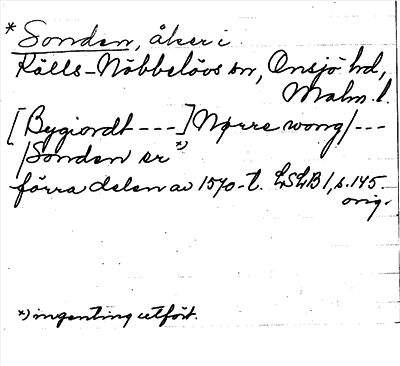 * Sonden, åker i
Källs-Nöbbelövs sn, Onsjö hd,
Malm. l.
[Bygiordt ---] Nørre wong/---
/Sonden er *)
förra delen av 1570-t. LSLB 1, s. 145.
orig.
*) ingenting utfört.